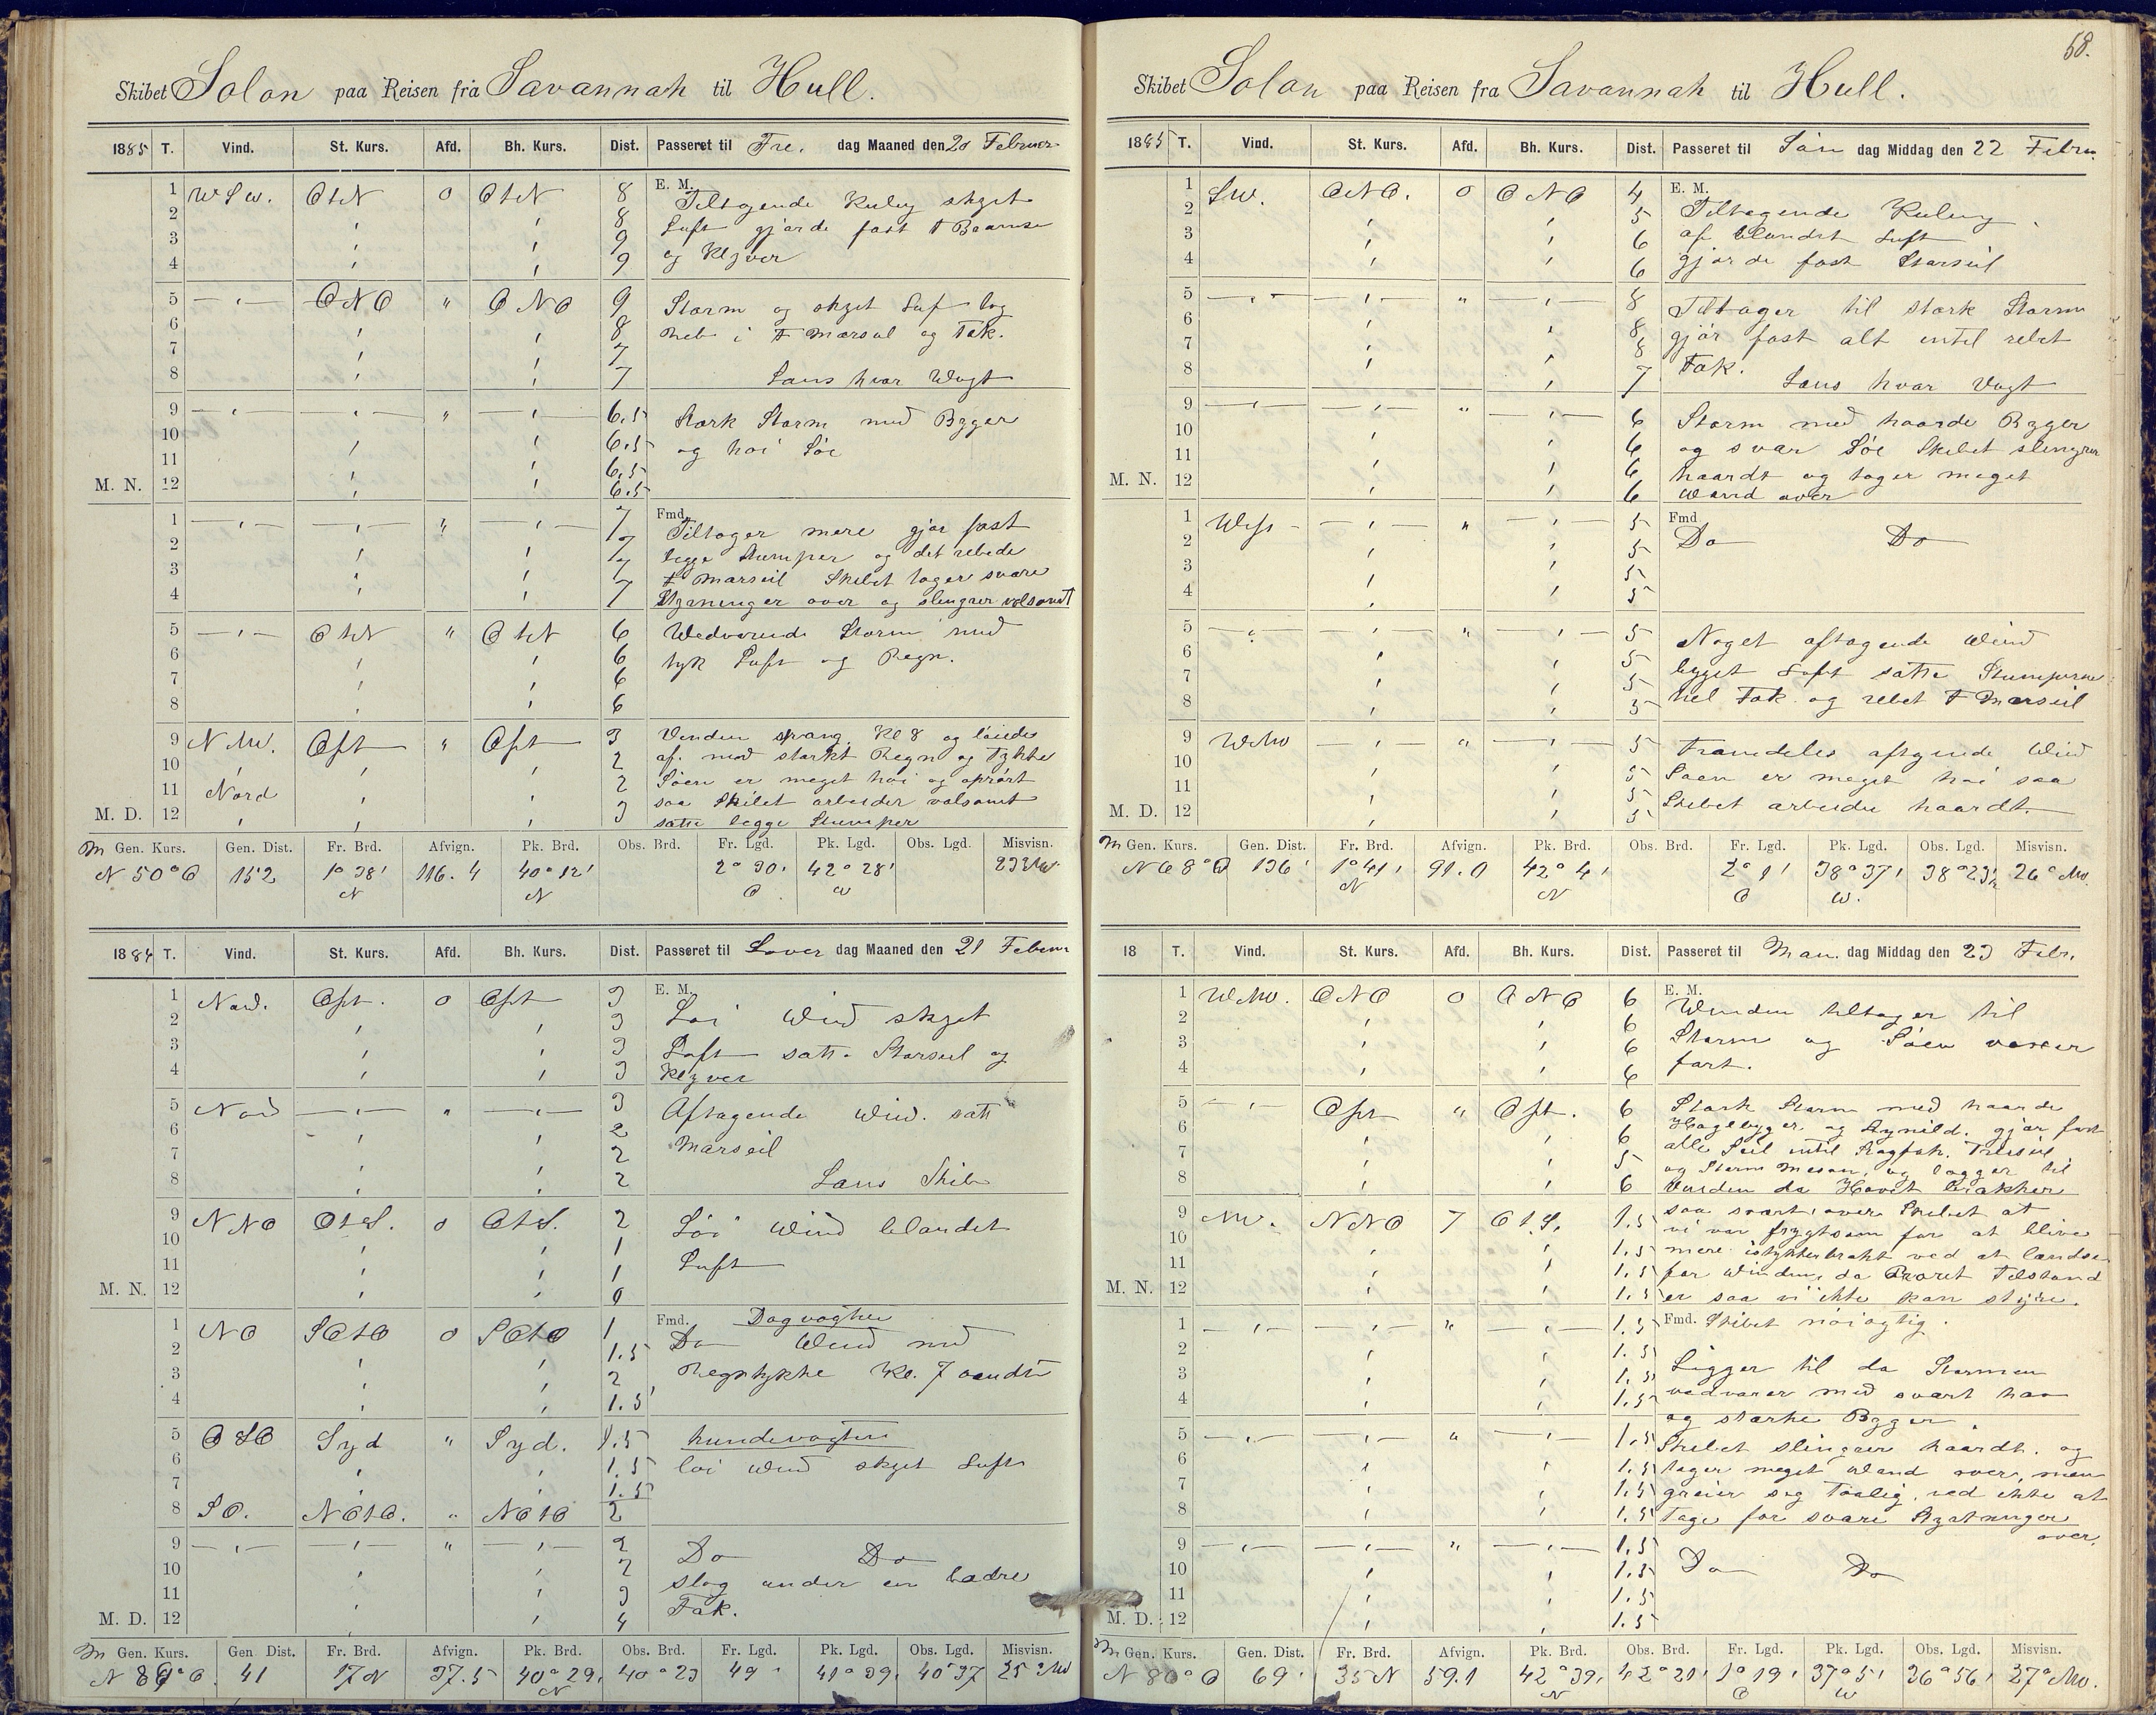 Skibet Solon paa Reisen fra Savannah til Hull.
1885 T. Vind. St. Kurs. Afd. Bh. Kurs. Dist. Passeret til Fre. dag Maaned den 20 Februar
E. M.
1 W S W. O t N 0 O t N 8 Tiltagende Kuling skyet
2 8 Luft gjorde fast F Bramse
3 9
4 9 og Klyver
5 O N O " O N O 9 Storm og skyet Luf tog
6 8 Reb i F Mærseil og Fok.
7 7
8 7 Lans hver Vagt
9 " 6.5 Stærk Storm med Byger
10 6.5 og høi Søe
11 6.5
M. N. 12 6.5
Fmd.
1 " 7 Tiltager mere gjør fast
2 7 begge Stumper og det rebede
3 7 F Mærseil Skibet tager svære
4 7 Styrtninger over og slingrer volsomt
5 O t N " O t N 6 Vedvarende Storm med
6 6 tyk Luft og Regn.
7 6
8 6
9 N NW. Ost " Ost 3 Vinden sprang Kl 8 og løiede
10 2 af. med stærkt Regn og Tykke
11 Nord 2 Søen er meget høi og oprørt
M. D. 12 3 saa Skibet arbeider volsomt
satte begge Stumper
M Gen. Kurs. Gen. Dist. Fr. Brd. Afvign. Pk. Brd. Obs. Brd. Fr. Lgd. Pk. Lgd. Obs. Lgd. Misvisn.
N 50° O 152 1° 38' 116.4 40° 12' 2° 30' 42° 28' 23 NW
N N O W
1884 T. Vind. St. Kurs. Afd. Bh. Kurs. Dist. Passeret til Løver dag Maaned den 21 Februar
E. M.
1 Nord. Ost. 0 Ost 3 Løi Vind skyet
2 3
3 3 Luft satte Storseil og
4 3 Klyver
5 Nord " 3 Aftagende Vind. satt
6 2 Mærseil
7 2
8 2 Lans Skib
9 N N O O t S. 0 O t S. 2 Løi Vind blandet
10 1
11 1 Luft
M. N. 12 0
Fmd. Dagvagten
1 N O S O t O 0 S O t O 1 Do Vind med
2 1.5
3 2 Regntykke Kl. 7 vendte
4 1.5
5 O S O Syd " Syd. 1.5 hundevagten
6 1.5 løi Vind skyet Luft
7 1.5
8 S O. N O t O. " N O t O 2
9 " 2 Do Do
10 2 slog under en bædre
11 3
M. D. 12 4 Fok.
M Gen. Kurs. Gen Dist. Fr. Brd. Afvign. Pk. Brd. Obs. Brd. Fr. Lgd. Pk. Lgd. Obs. Lgd. Misvisn.
N 86° O. 41 17 N 37.5 40° 29' 40° 23 49' 41° 39' 40° 37 25° NW
N
58.
Skibet Solon paa Reisen fra Savannah til Hull.
1885 T. Vind. St. Kurs. Afd. Bh. Kurs. Dist. Passeret til Søn dag Middag den 22 Febru.
E. M.
1 S W. O N O. 0 O N O 4 Tiltagende Kuling
2 5
3 6 af blandet Luft
4 6 gjorde fast Storseil
5 " 8 Tiltager til stærk Storm
6 8 gjør fast alt intil rebet
7 8 Fok.
8 7 Lans hver Vagt
9 " 6 Storm med haarde Byger
10 6 og svær Søe Skibet slingrer
11 6 haardt og tager meget
M. N. 12 6 Vand over
Fmd
1 West " 5 Do Do
2 5
3 5
4 5
5 " 5 Noget aftagende Vind
6 5
7 5 bygget Luft satte Stumperne
8 5 hel Fok og rebet F Mærseil
9 W NW " 5 Fremdeles aftgende Vind
10 5
11 5 Søen er meget høi saa
M. D. 12 5 Skibet arbeider haardt.
M Gen. Kurs. Gen. Dist. Fr. Brd. Afvign. Pk. Brd. Obs. Brd. Fr. Lgd. Pk. Lgd. Obs. Lgd. Misvisn.
N 68° O 136' 1° 41' 91.0 42° 4' 2° 1' 38° 37' 38° 23½ 26° NW.
N N O W.
18 T. Vind. St. Kurs. Afd. Bh. Kurs. Dist. Passeret til Man. dag Middag den 23 Febr.
E. M.
1 W NW. O N O 0 O N O 6 Vinden tiltager til
2 6
3 6 Storm og Søen voxer
4 6 fort.
5 Ost " Ost. 6 Stærk Storm med haarde
6 6 Haglbyger og Lynild. gjør fast
7 5 alle Seil intil Stagfok. Treiseil
8 6 og Storm Mesan, og lægger til
Vinden da Havet brækker
9 NW. N N O 7 O t S. 1.5 saa svært over Skibet at
10 1.5 vi var frygtsom for at blive
mere istykkerbrækt ved at lændse
11 1.5 for Vinden, da Roret Tilstand
M. N. 12 1.5 er saa vi ikke kan styre.
Fmd. Skibet nøiagtig.
1 " 1.5
2 1.5 Ligger til da Stormen
3 1.5
4 1.5 vedvarer med svært hav
og stærke Bygger.
5 " 1.5 Skibet slingrer haardt. og
6 1.5 tager meget Vand over, men
7 1.5 greier sig taalig. ved ikke at
8 1.5 Tage for svære Styrtninger
over.
9 " 1.5
10 1.5 Do Do
11 1.5
M. D. 12 1.5
M Gen. Kurs. Gen. Dist. Fr. Brd. Afvign. Pk. Brd. Obs. Brd. Fr. Lgd. Pk. Lgd. Obs. Lgd. Misvisn.
N 80° O 69' 35 N 59.1 42° 39' 42° 21' 1° 19' 37° 5' 36° 56' 27° NW.
N O W